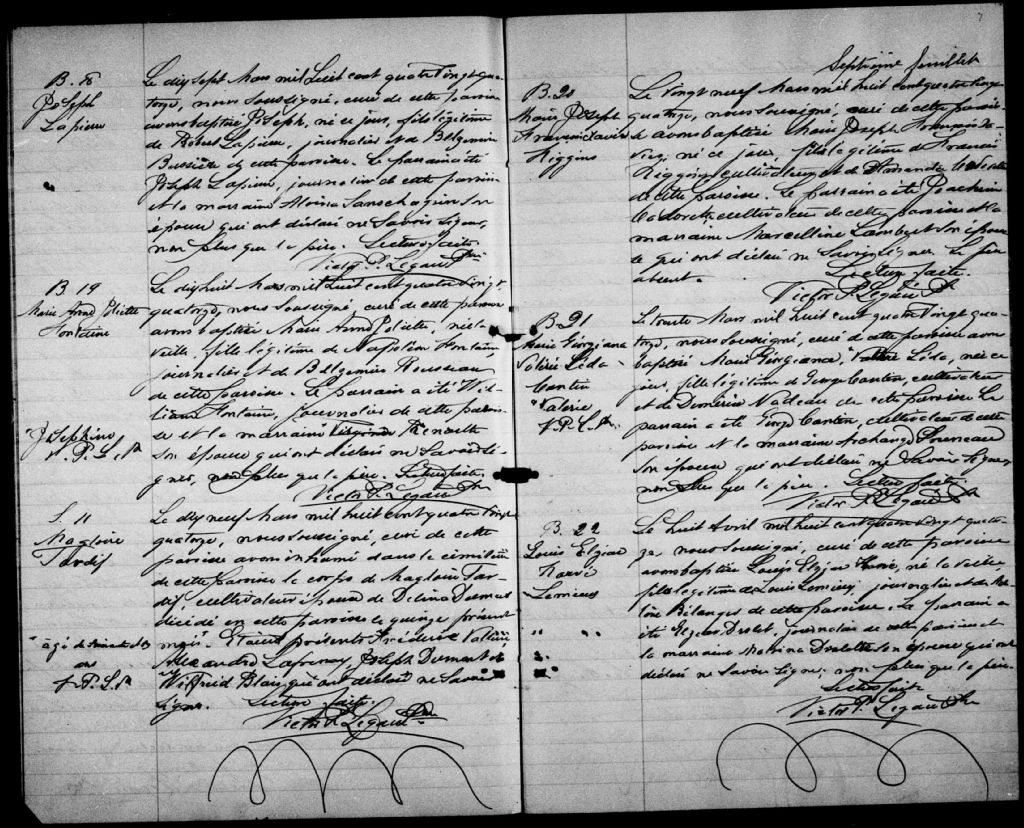 B. 18
Joseph
Lapierre
Le dix sept Mars mil huit cent quatre vingt qua-
torze, nous soussigné, curé de cette paroisse
avons baptisé Joseph, né ce jour, fils légitime
de Robert Lapierre, journalier et de Belzemire
Bussière de cette paroisse. Le parrain a été
Joseph Lapierre, journalier de cette paroisse
et la marraine Aloisia Sanschagrin son
épouse qui ont déclaré ne savoir signer,
non plus que le père. Lecture faite.
Victor P. Légaré Ptre
B. 19
Marie Anna Poliette
Fontaine
Le dix huit Mars mil huit cent quatre vingt
quatorze, nous soussigné, curé de cette paroisse
avons baptisé Marie Anna Poliette, née la
veille, fille légitime de Napoléon Fontaine
journalier et de Belzemire Rousseau
de cette paroisse. Le parrain a été Wil-
liam Fontaine, journalier de cette parois-
se et la marraine Renault
son épouse qui ont déclaré ne savoir si-
gner, non plus que le père. Lecture faite.
Victor P. Légaré Ptre
Joséphine
V. P. L. Ptre
S. 11
Magloire
Tardif
Le dix neuf Mars mil huit cent quatre vingt
quatorze, nous soussigné, curé de cette
paroisse avons inhumé dans le cimetière
de cette paroisse le corps de Magloire Tar-
dif, cultivateur époux de Delina Dumas
décédé en cette paroisse le quinze présent
mois. Etaient présents Frédéric Vallière
Alexandre Lafrenay, Joseph Dumas et
Wilfreid Blais qui ont déclaré ne savoir
signer. Lecture faite.
Victor P. Légaré Ptre
âgé de
ans
V. P. L. Ptre
Septième feuillet
B. 20
Marie Joseph
François Xavier
Higgins
Le vingt neuf Mars mil huit cent quatre vingt
quatorze, nous soussigné, curé de cette parois-
se avons baptisé Marie Joseph François Xa-
vier, né ce jour, fils légitime de Francis
Higgins cultivateur et de Amanda Cadorette
de cette paroisse. Le parrain a été Joachim
Cadorette cultivateur de cette paroisse et la
marraine Marcelline Lambert son épouse
qui ont déclaré ne savoir signer. Le père
absent. Lecture faite.
Victor P. Légaré Ptre
B. 21
Marie Georgiana
Valérie Léda
Cantin
Valérie
V. P. L. Ptre
Le trente Mars mil huit cent quatre vingt qua-
torze, nous soussigné, curé de cette paroisse avons
baptisé Marie Georgiana, Léda, née ce
jour, fille légitime de George Cantin, cultivateur
et de Démérise Nadeau de cette paroisse Le
parrain a été George Cantin, cultivateur de cette
paroisse et la marraine Archange
son épouse qui ont déclaré ne savoir signer
non plus que le père. Lecture faite.
Victor P. Légaré Ptre
B. 22
Louis Elzéar
Hervé
Lemieux
Le huit Avril mil huit cent quatre vingt quator-
ze, nous soussigné, curé de cette paroisse
avons baptisé Louis Elzéar Hervé, né la veille
fils légitime de Louis Lemieux, journalier et de
Bélanger de cette paroisse. Le parrain a
été Elzéar Drolet, journalier de cette paroisse et
la marraine Malvina Drolette son épouse qui ont
déclaré ne savoir signer, non plus que le père.
Lecture faite
Victor P. Légaré Ptre